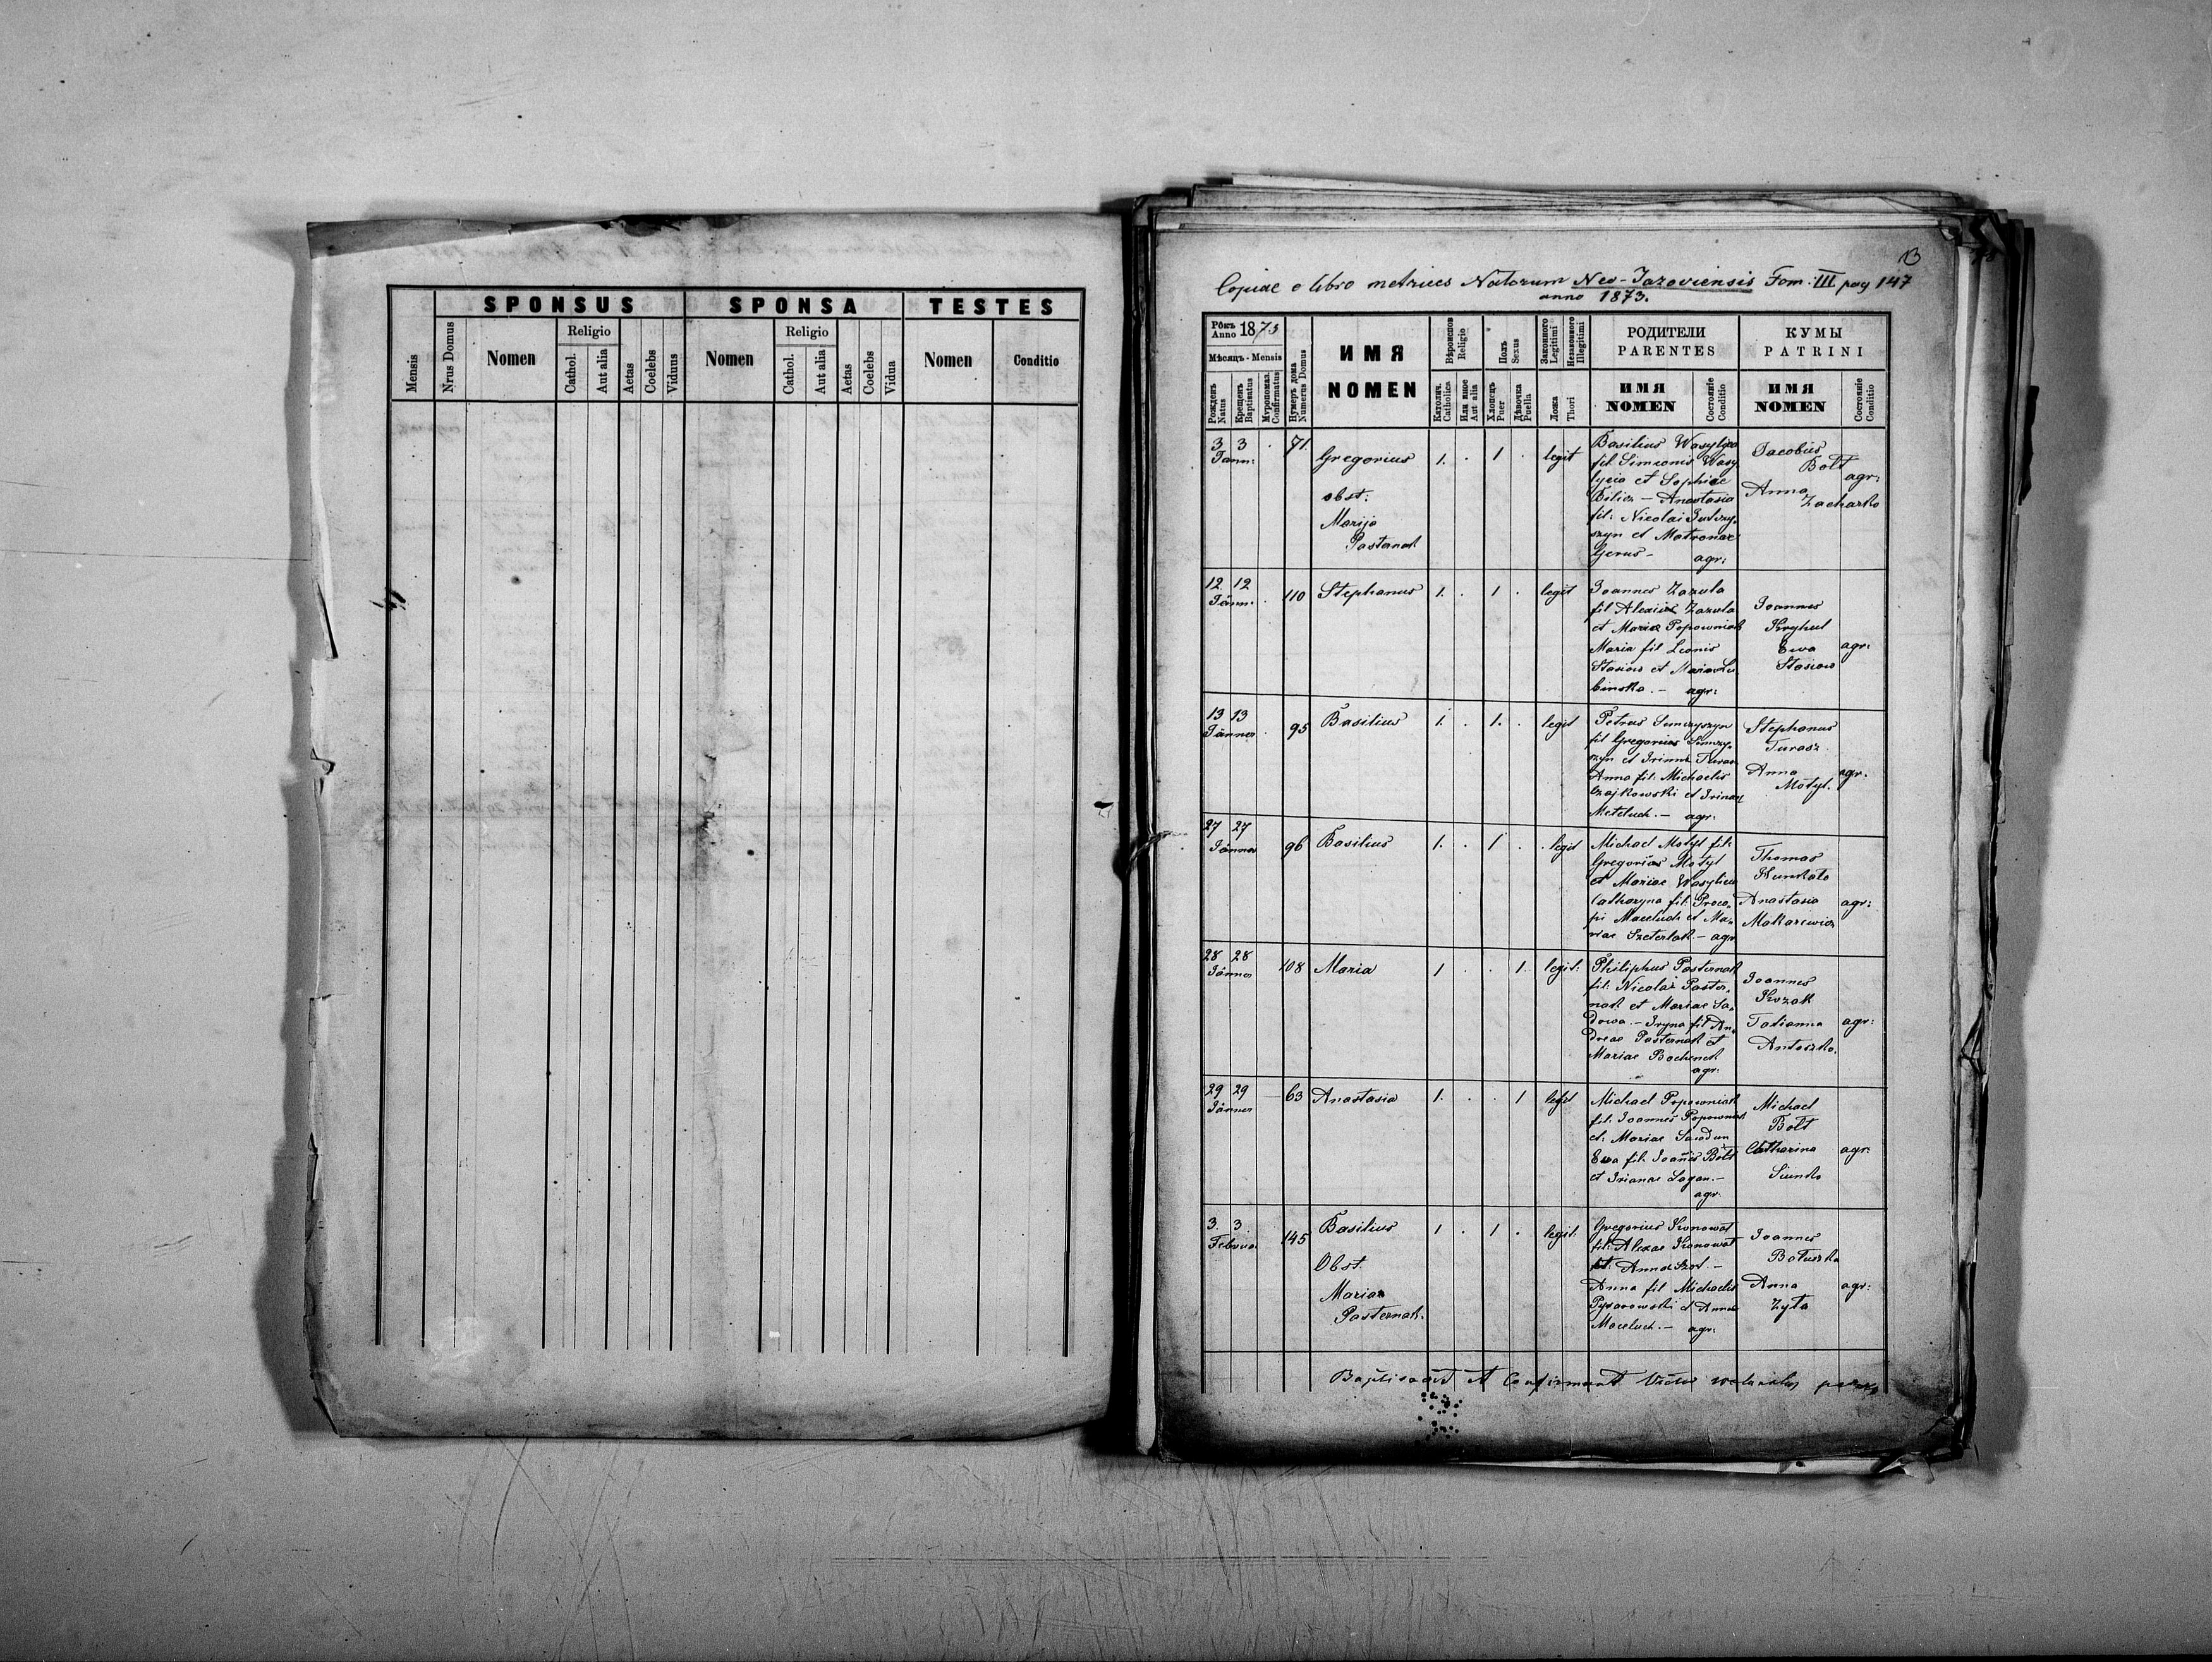 SPONSUS SPONSA TESTES
Mensis
Nrus Domus
Nomen
Religio
Cathol.
Aut alia
Aetas
Coelebs
Viduus
Nomen
Religio
Cathol.
Aut alia
Aetas
Coelebs
Vidua
Nomen
Conditio
13
Copiae e libro metrices Natorum Neo-Jazoviensis Tom. III pag 147
anno 1873.
Рôкъ
Anno 1873
Мѣсяцъ - Mensis
Рожденъ
Natus
Крещенъ
Baptisatus
Мѵропомаз.
Confirmatus
Нумеръ дома
Numerus Domus
ИМЯ
NOMEN
Вѣроиспов
Religio
Католич.
Catholica
Или иное
Aut alia
Полъ
Sexus
Хлопецъ
Puer
Дѣвочка
Puella
Законного
Legitimi
Незаконного
Illegitimi
Ложа
Thori
РОДИТЕЛИ
PARENTES
ИМЯ
NOMEN
Состояніе
Conditio
КУМЫ
PATRINI
ИМЯ
NOMEN
Состояніе
Conditio
3 3
Jänn:
71.
Gregorius
obst:
Marija
Pasternak
1. . 1 . legit
Basilius
fil. Simeonis Wasy
lycia et Sophiae
Bilicz - Anastasia
fil: Nicolai
szyn et Matronae
Gerus - agr:
Jacobus
Bolt
agr:
Anna
Zacharko
12 12
Jänn.
110 Stephanus 1. . 1 . legit
Joannes Zazula
fil Alexius Zazula
et Mariae Popowniak
Maria fil Leonis
Stasiow et Mariae Lu
binska. - agr:
Joannes
Kryhul
Ewa agr:
Stasiow
13 13
Jänner
95 Basilius 1. . 1. . legit
Petrus Simczyszyn
fil Gregorius Simczy-
szyn et Irinae
Anna fil. Michaelis
Czajkowski et Irinae
Meteluch. - agr.
Stephanus
Turasz
Anna agr.
Motyl.
27 27
Jänner
96 Basilius 1. . 1 . legit
Michael Motyl fil.
Gregorius Motyl
et Mariae Wasyliew
Catharyna fil. Proco-
pi Maceluch et Ma-
riae Szeterlak - agr
Thomas
Anastasia agr:
Makarewicz
28 28
Jänner
108 Maria 1 . . 1. legit:
Philiphus Pasternak
fil. Nicolai Paster-
nak et Mariae Sa-
dowa. - Iryna fil An-
dreae Pasternak et
Mariae Bochenek
agr.
Joannes
Kozak
Tatianna agr:
Antoszko.
29 29
Jänner
63 Anastasia 1. . . 1 legit
Michael Popowniak
fil. Joannes Popowniak
et. Mariae
Ewa fil. Joannis Bolt
et Irianae Lagan. -
agr.
Michael
Bolt
Catharina agr:
Siunko
3. 3.
Februa
145 Basilius 1 . 1 . legit.
Obst.
Maria
Pasternak.
Gregorius Konowal
fil. Alexae Konowal
et. Annae Szot. -
Anna fil Michaelis
Pysarowski et Annae
Maceluch. - agr:
Joannes
Botuszka
Anna agr:
Zyla
Baptisavit et Confirmavit Victor